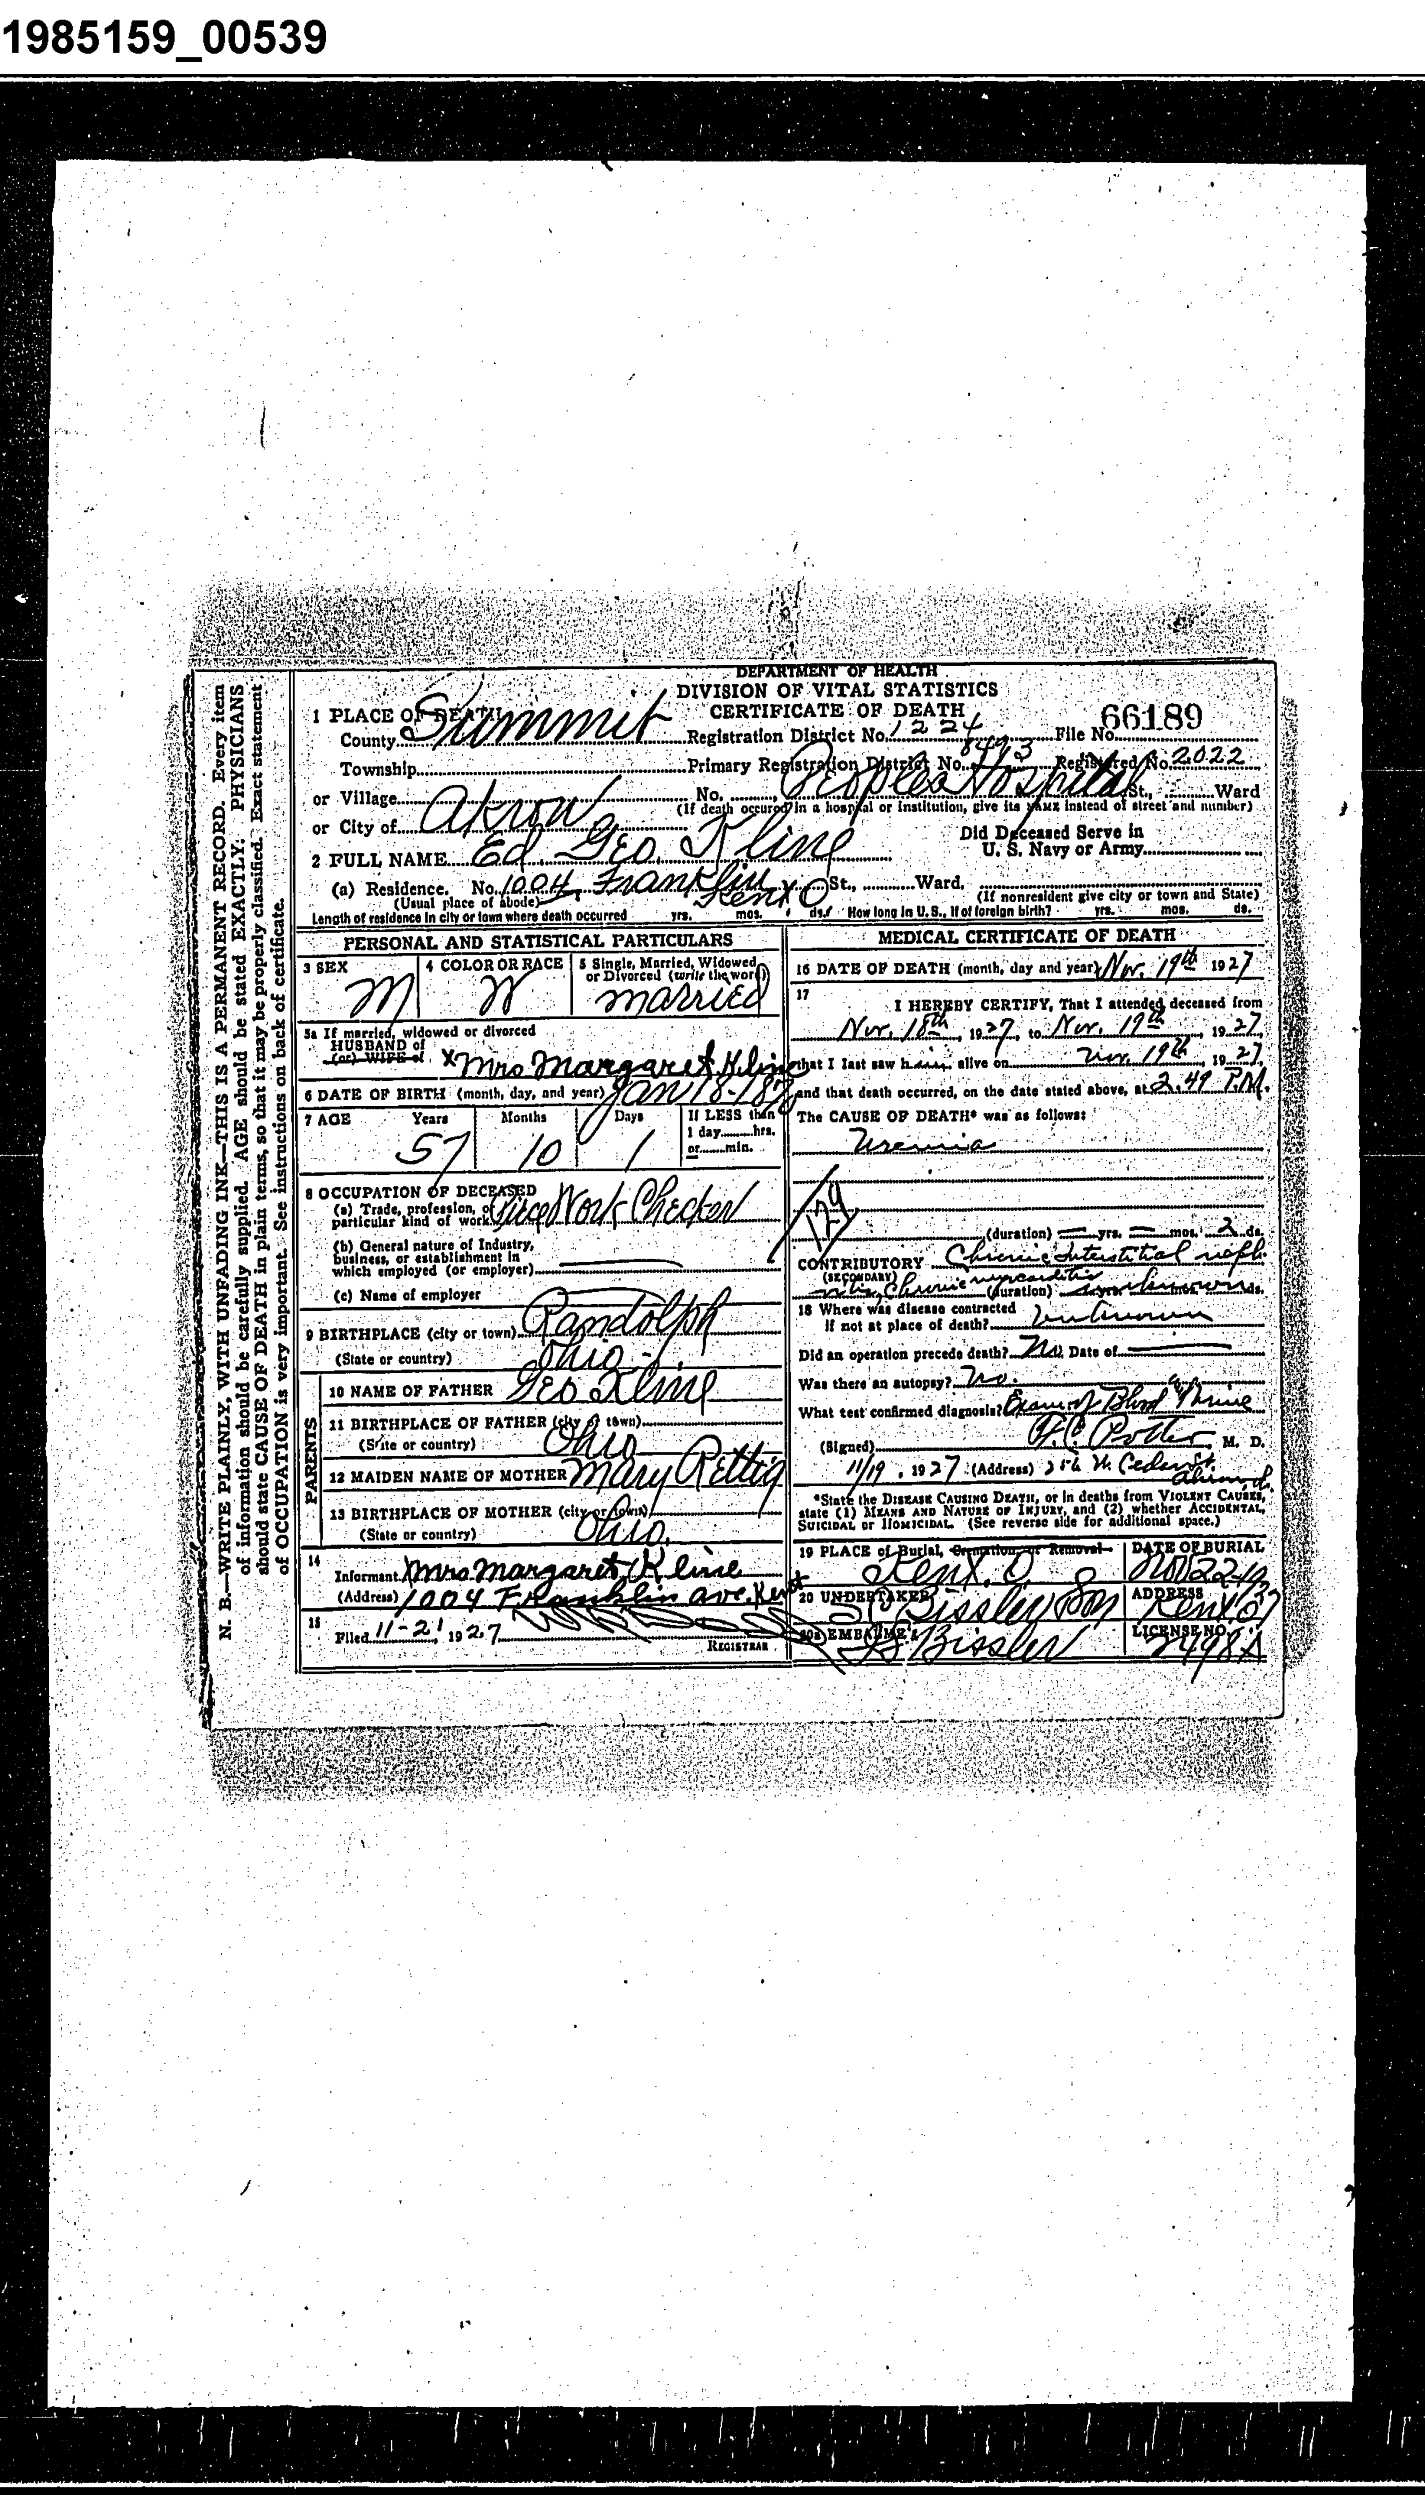 1985159_00539
DEPARTMENT OF HEALTH
DIVISION OF VITAL STATISTICS
CERTIFICATE OF DEATH
1 PLACE OF DEATH
County Summit
Registration District No. 1224
File No. 66189
Township
Primary Registration District No. 8493
Registered No. 2022
or Village
No. Peoples Hospital St., Ward
(If death occured in a hospital or institution, give its NAME instead of street and number)
or City of Akron
2 FULL NAME Ed. Geo. Kline
Did Deceased Serve in
U. S. Navy or Army
(a) Residence. No. 1004 Franklin St., Ward,
(Usual place of abode) Kent O
(If nonresident give city or town and State)
Length of residence in city or town where death occurred yrs. mos. ds. How long in U. S., if of foreign birth? yrs. mos. ds.
PERSONAL AND STATISTICAL PARTICULARS
3 SEX M
4 COLOR OR RACE W
5 Single, Married, Widowed
or Divorced (write the word)
married
5a If married, widowed or divorced
HUSBAND of
(or) WIFE of x Mrs Margaret Kline
6 DATE OF BIRTH (month, day, and year) Jan 18-187
7 AGE Years Months Days If LESS than
1 day hrs.
or min.
57 10 1
8 OCCUPATION OF DECEASED
(a) Trade, profession, or
particular kind of work Piece Work Checker
(b) General nature of Industry,
business, or establishment in
which employed (or employer)
(c) Name of employer
9 BIRTHPLACE (city or town) Randolph
(State or country) Ohio
PARENTS
10 NAME OF FATHER Geo Kline
11 BIRTHPLACE OF FATHER (city or town)
(State or country) Ohio
12 MAIDEN NAME OF MOTHER Mary Rettig
13 BIRTHPLACE OF MOTHER (city or town)
(State or country) Ohio.
14
Informant Mrs Margaret Kline
(Address) 1004 Franklin ave. Kent
15
Filed 11-21, 1927
REGISTRAR
MEDICAL CERTIFICATE OF DEATH
16 DATE OF DEATH (month, day and year) Nov. 19th 1927
17
I HEREBY CERTIFY, That I attended deceased from
Nov. 18th, 1927, to Nov. 19th, 1927,
that I last saw him alive on Nov. 19th, 1927,
and that death occurred, on the date stated above, at 2.49 P.M.
The CAUSE OF DEATH* was as follows:
Uremia
129
(duration) yrs. mos. 2 ds.
CONTRIBUTORY Chronic Interstitial neph
(SECONDARY) ritis, Chronic myocarditis
(duration) unknown ds.
18 Where was disease contracted
if not at place of death? unknown
Did an operation precede death? No. Date of
Was there an autopsy? No.
What test confirmed diagnosis? Exam of Blood & Urine
(Signed) F. C. Potter, M. D.
11/19, 1927 (Address) W. Cedar St.
*State the DISEASE CAUSING DEATH, or in deaths from VIOLENT CAUSES,
state (1) MEANS AND NATURE OF INJURY, and (2) whether ACCIDENTAL,
SUICIDAL or HOMICIDAL. (See reverse side for additional space.)
19 PLACE of Burial, Cremation, or Removal
Kent. O
DATE OF BURIAL
Nov 22-1927
20 UNDERTAKER Bissler & Son
ADDRESS
Kent O
20a EMBALMER Bissler
LICENSE NO.
2498A
N. B.—WRITE PLAINLY, WITH UNFADING INK—THIS IS A PERMANENT RECORD. Every item
of information should be carefully supplied. AGE should be stated EXACTLY. PHYSICIANS
should state CAUSE OF DEATH in plain terms, so that it may be properly classified. Exact statement
of OCCUPATION is very important. See instructions on back of certificate.